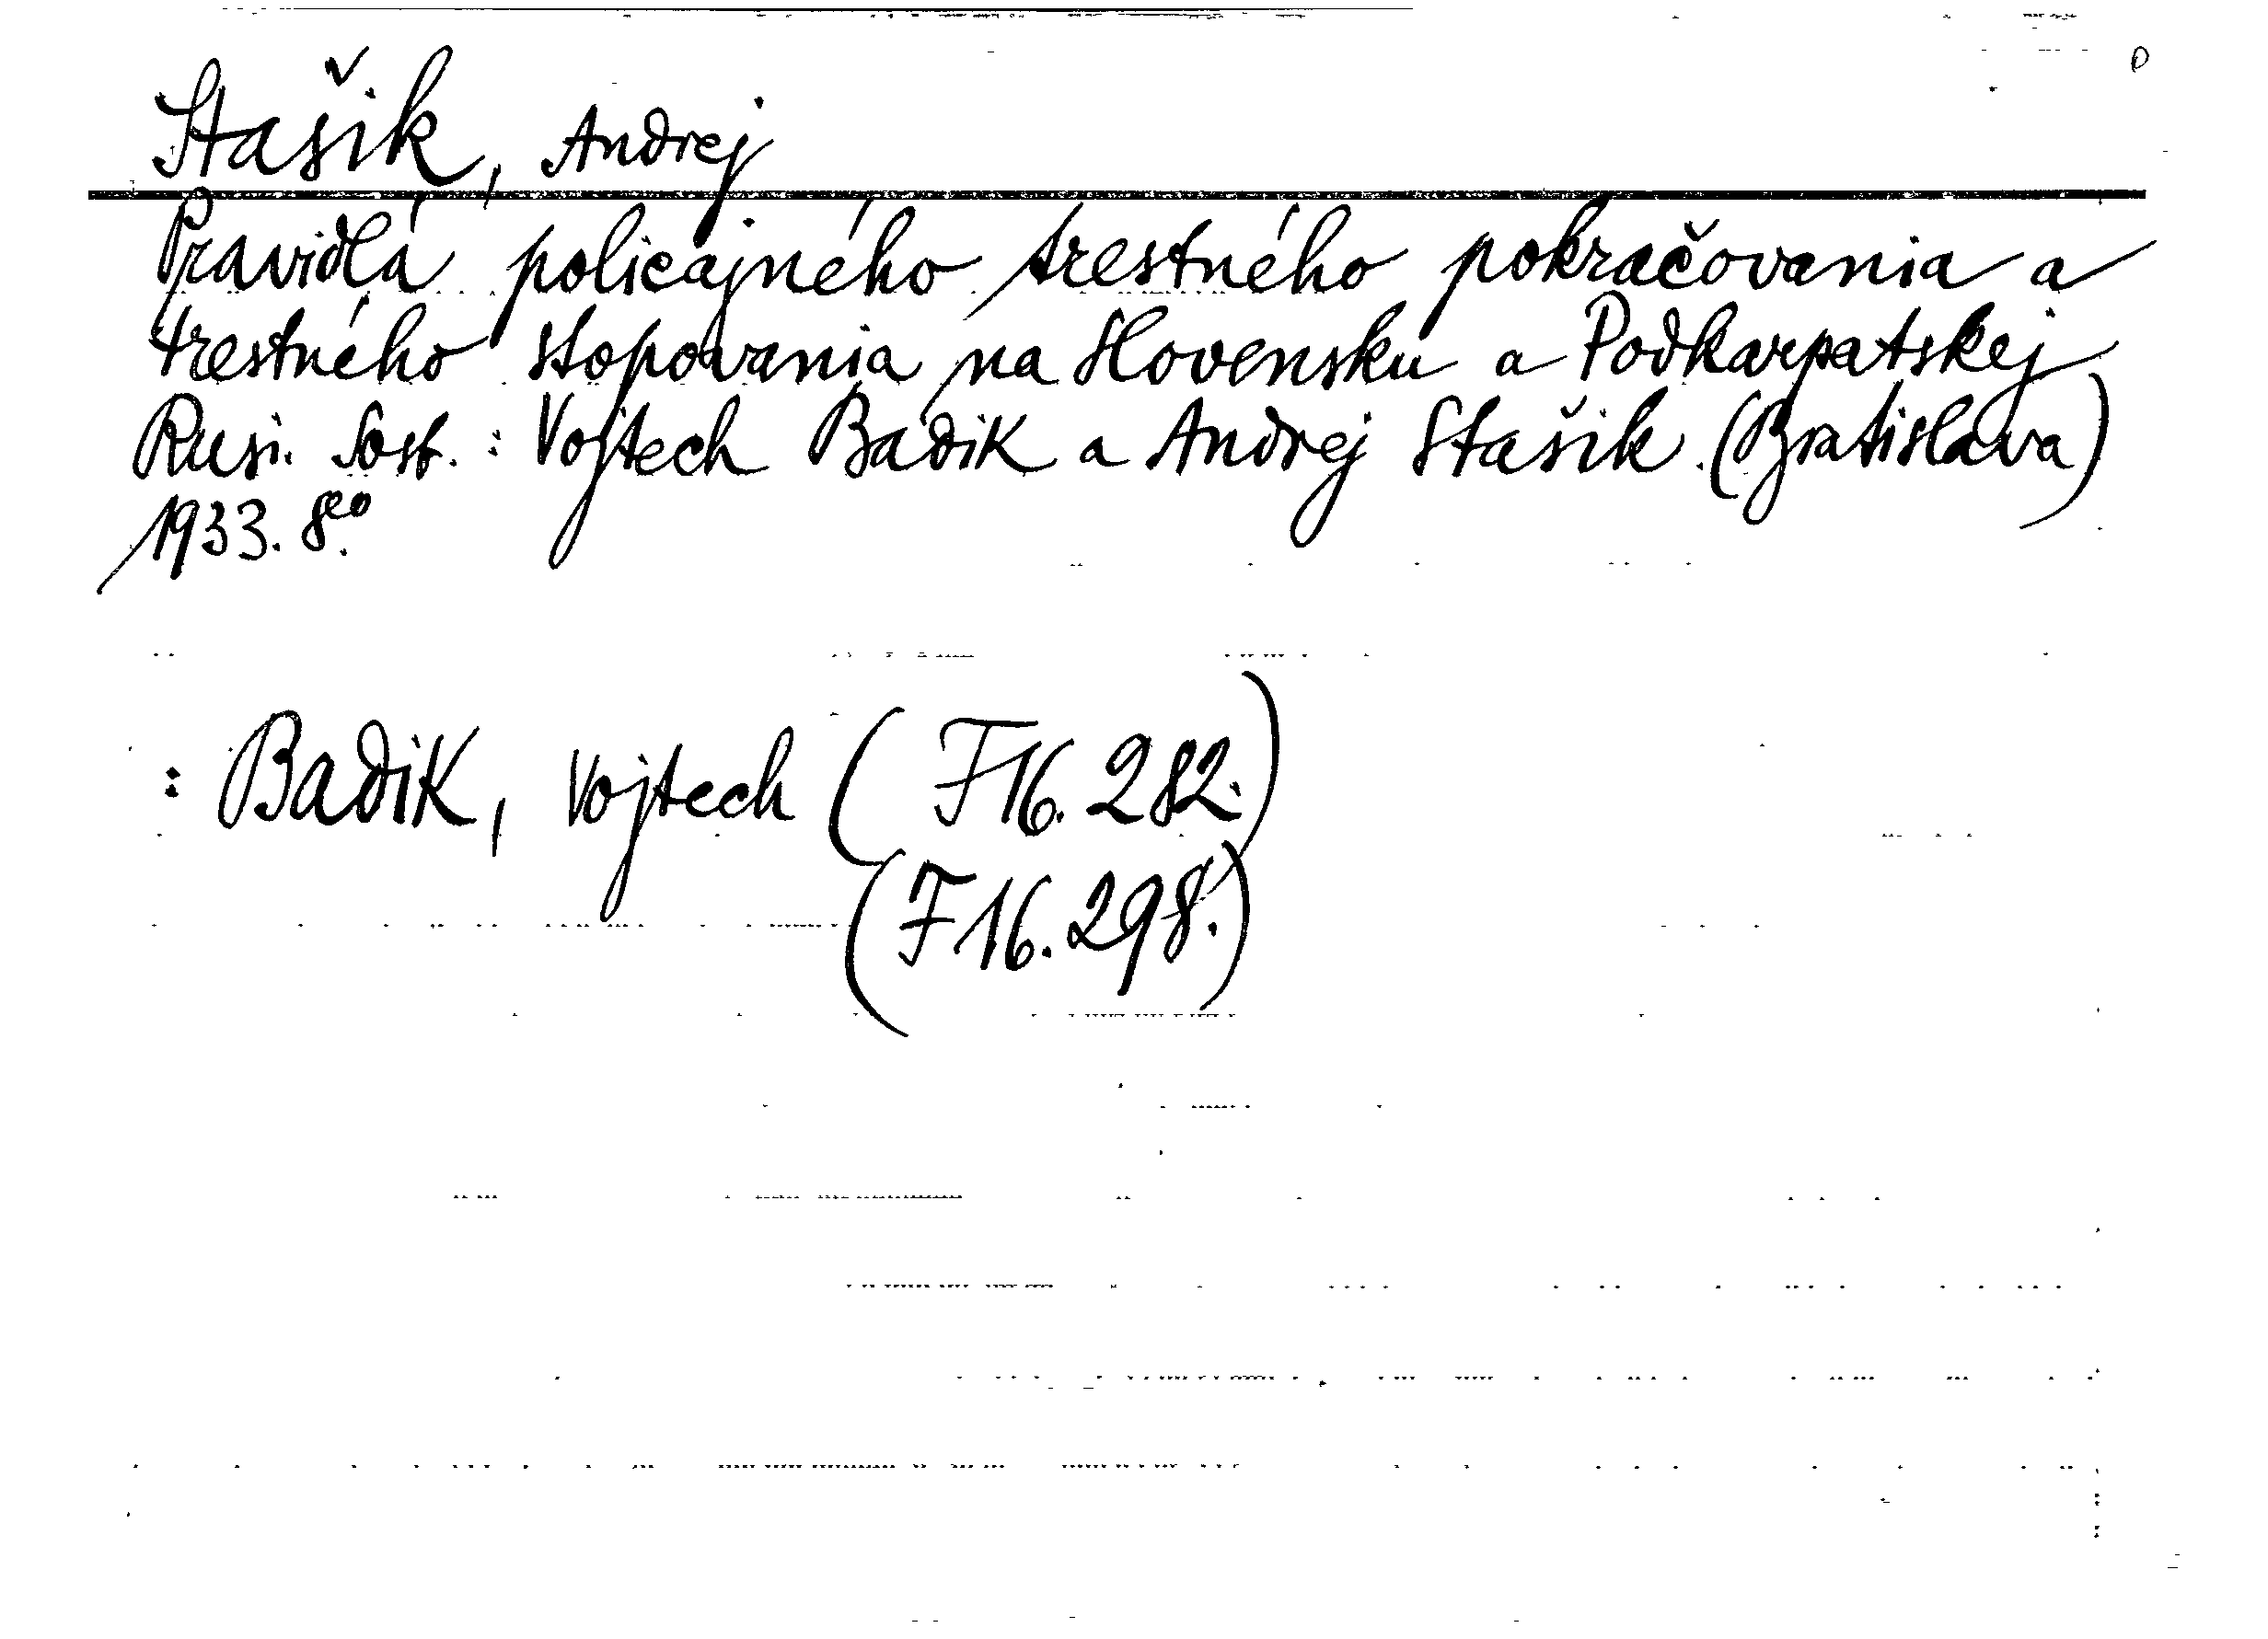 Stašik, Andrej
Pravidlá policajného trestného pokračovania a
trestného stopovania na Slovensku a Podkarpatskej
Rusi. Sost. : Vojtech Badik a Andrej Stašik. (Bratislava)
1933. 8eo.
: Badik, Vojtech (F16.282.)
(F16.298.)